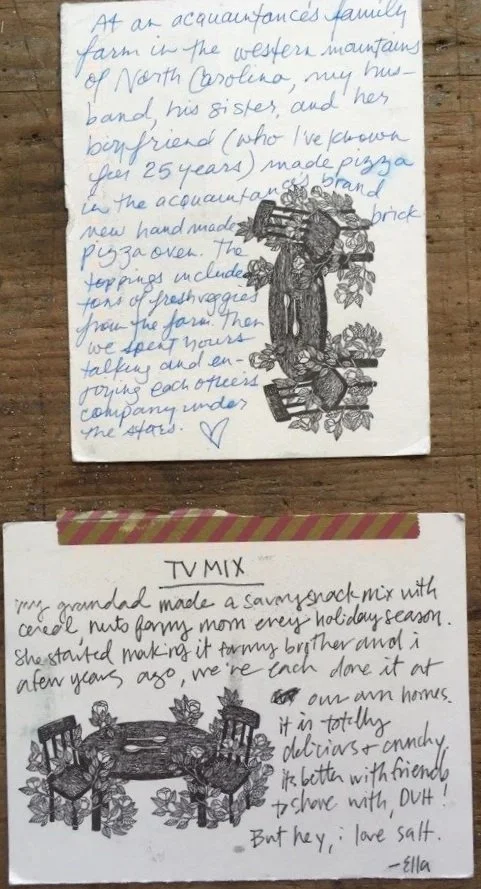 At an acquaintance's family
farm in the western mountains
of North Carolina, my hus-
band, his sister, and her
boyfriend (who I've known
for 25 years) made pizza
in the acquaintance's brand
new hand made brick
pizza oven. The
toppings included
tons of fresh veggies
from the farm. Then
we spent hours
talking and en-
joying each others
company under
the stars. ♡
TV MIX
my grandad made a savory snack mix with
cereal, nuts for my mom every holiday season.
She started making it for my brother and i
a few years ago, we're each done it at
our own homes.
it is totally
delicious + crunchy.
its better with friends
to share with, DUH!
But hey, i love salt.
-Ella